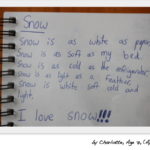 Snow
Snow is as white as paper,
Snow is as soft as my bed.
Snow is as cold as the refrigerator,
Snow is as light as a feather,
Snow is white soft cold and
light.
I love snow!!!
by Charlotte, Age 7,